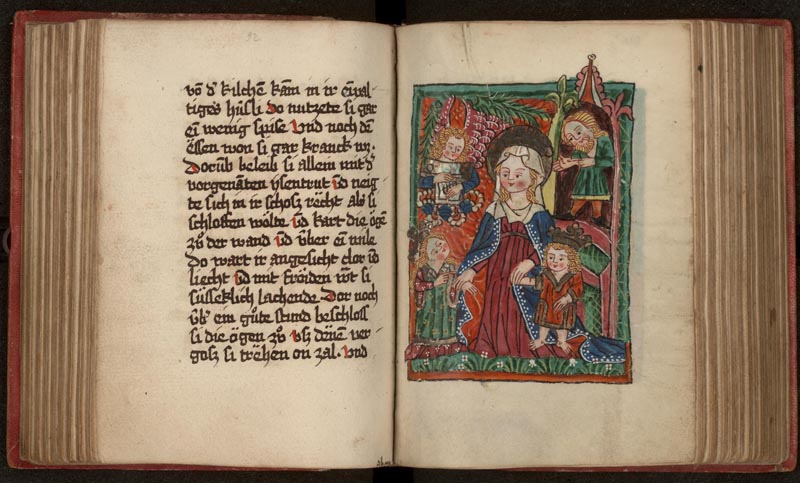 92
vō dˢ kilchē kām in ir eiwal-
tiges hüsli do nutzete si gar
ein wenig spise vnd noch dē
ēssen won si gar kranck wz.
Dorūb beleib si allein mit dˢ
vorgenāten ysentrut vn̄ neig
te sich in ir schosz rëcht als si
schloffen wölte. vn̄ kart die ögē
zů der wand vn̄ vber ein wile
Do wart ir angesicht clor vn̄
liecht vn̄ mit fröiden wͬt si
süsseklich lachende. Dor noch
vbˢ ein gůte stund beschloss
si die ögen zů vsz dēnē ver
gosz si trëhen on zal. vnd